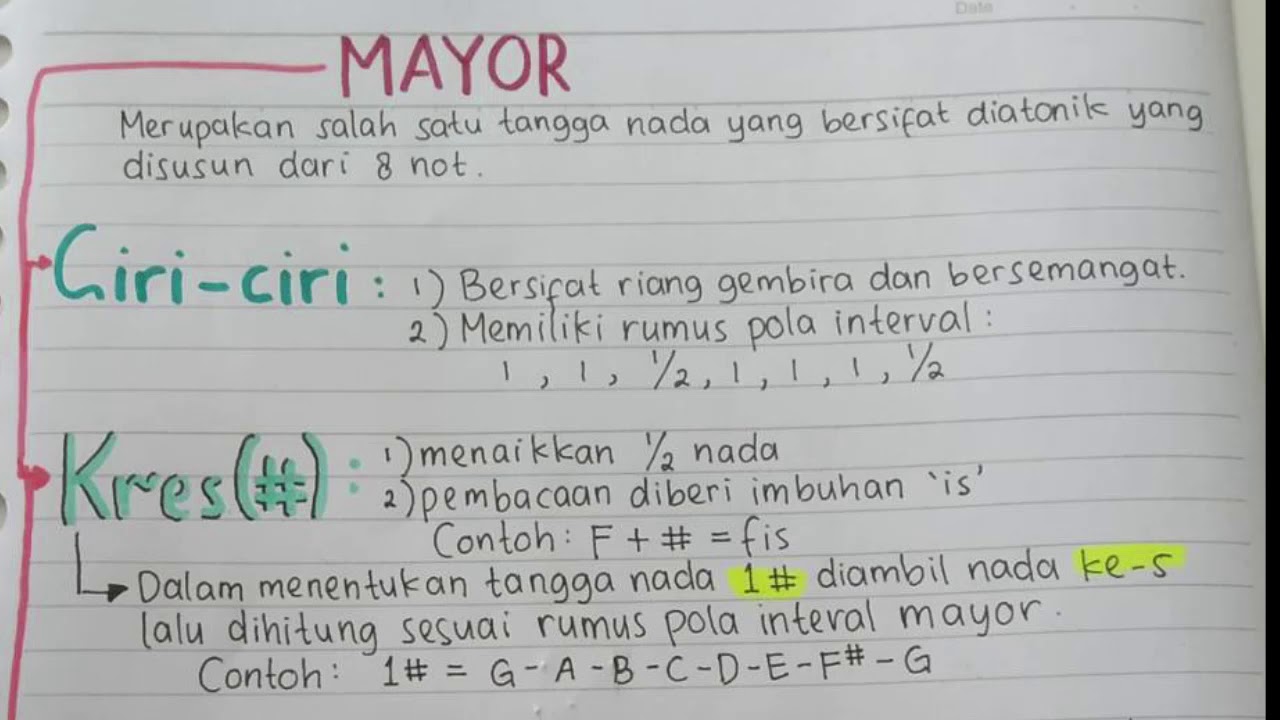 Date
MAYOR
Merupakan salah satu tangga nada yang bersifat diatonik yang
disusun dari 8 not.
Ciri-ciri : 1) Bersifat riang gembira dan bersemangat.
2) Memiliki rumus pola interval :
1 , 1 , 1/2 , 1 , 1 , 1 , 1/2
Kres(#) : 1) menaikkan 1/2 nada
2) pembacaan diberi imbuhan 'is'
Contoh : F + # = fis
Dalam menentukan tangga nada 1# diambil nada ke-5
lalu dihitung sesuai rumus pola interal mayor.
Contoh : 1# = G - A - B - C - D - E - F# - G